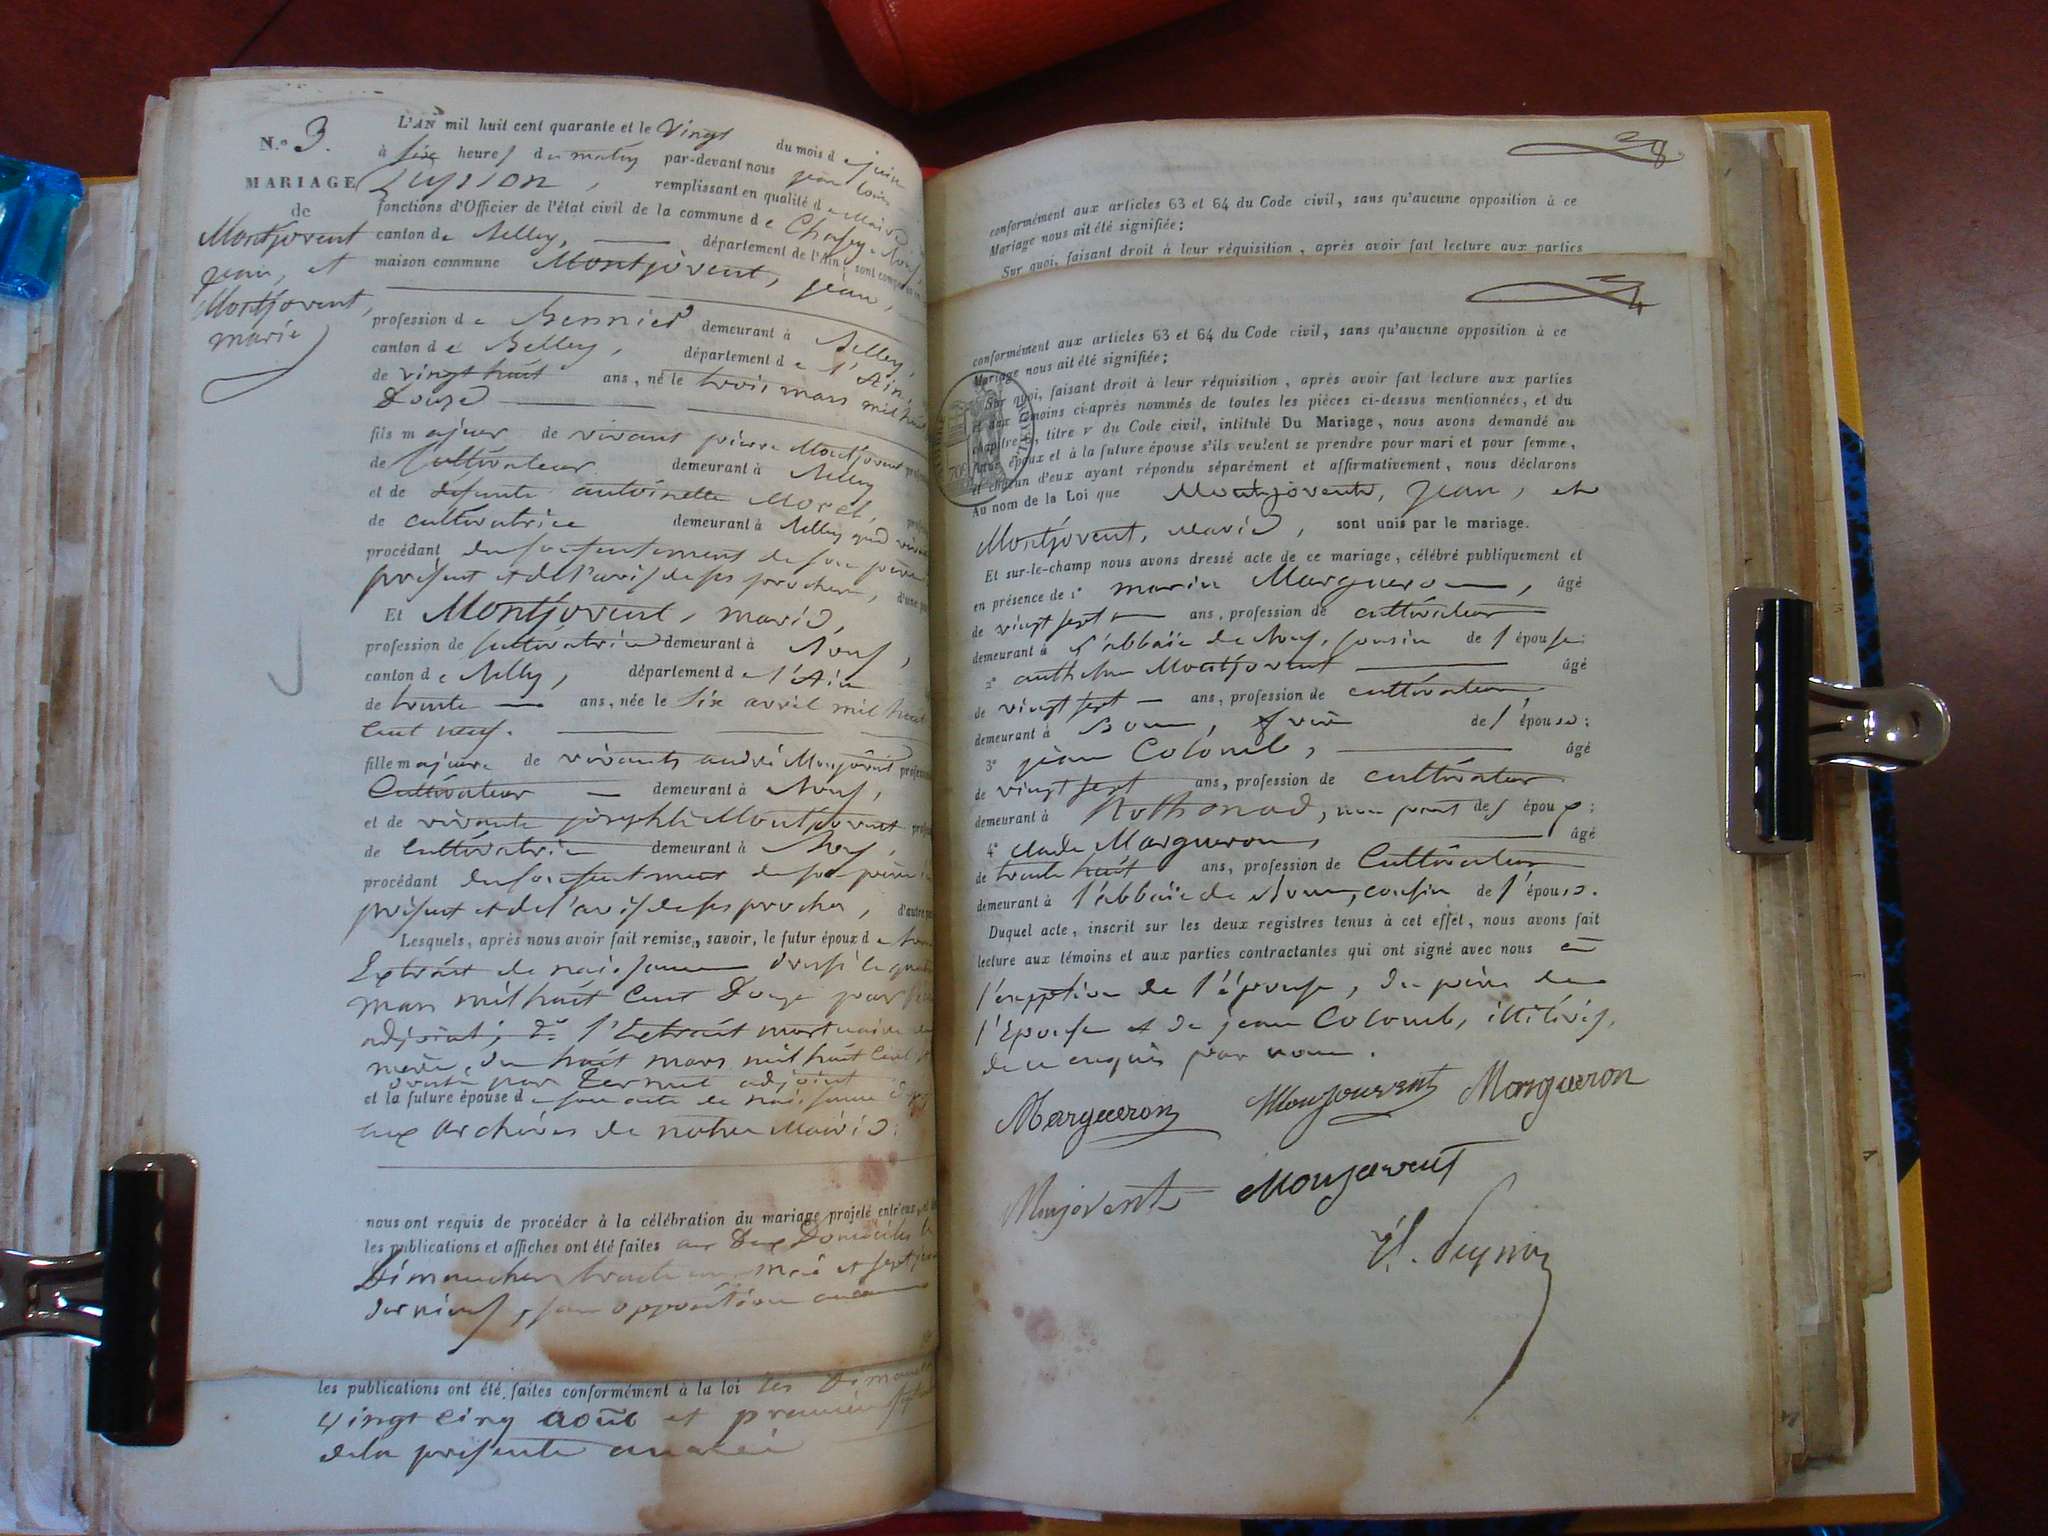 N.º 3.
MARIAGE
de
Montjovent
jean, et
Montjovent,
marie
L'AN mil huit cent quarante et le vingt du mois de juin
à six heures du matin par-devant nous jean louis
remplissant en qualité de Maire
fonctions d'Officier de l'état civil de la commune de
canton de Belley, département de l'Ain, sont
maison commune Montjovent, jean,
profession de demeurant à Belley,
canton de Belley, département de l'Ain,
de vingt huit ans, né le trois mars mil huit
Douze
fils majeur de vivant pierre Montjovent
de Cultivateur demeurant à Belley
et de défunte antoinette Morel,
de cultivatrice demeurant à Belley
procédant du consentement de son père
présent et de l'avis de ses proches, d'une
Et Montjovent, marie,
profession de Cultivatrice demeurant à
canton de Belley, département de l'Ain
de trente ans, née le six avril mil huit
Cent neuf.
fille majeure de vivants andré Monjovent
Cultivateur demeurant à
et de vivante josephte Montjovent
de Cultivatrice demeurant à
procédant du consentement de son père
présent et de l'avis de ses proches, d'autre
Lesquels, après nous avoir fait remise, savoir, le futur époux de
Extrait de naissance dressé le
mars mil huit Cent Douze par
adjoint; 2.º l'Extrait mortuaire
mère, du huit mars mil huit Cent
par adjoint
et la future épouse de son acte de naissance
aux archives de notre Mairie:
nous ont requis de procéder à la célébration du mariage projeté entr'eux
les publications et affiches ont été faites aux Deux Domiciles
Dimanches trente un Mai et sept juin
derniers, sans opposition aucune
les publications ont été faites conformément à la loi les Dimanches
vingt cinq août et premier
de la présente année
conformément aux articles 63 et 64 du Code civil, sans qu'aucune opposition à ce
Mariage nous ait été signifiée;
Sur quoi, faisant droit à leur réquisition, après avoir fait lecture aux parties
conformément aux articles 63 et 64 du Code civil, sans qu'aucune opposition à ce
Mariage nous ait été signifiée;
Sur quoi, faisant droit à leur réquisition, après avoir fait lecture aux parties
et aux témoins ci-après nommés de toutes les pièces ci-dessus mentionnées, et du
chapitre 6, titre v du Code civil, intitulé Du Mariage, nous avons demandé au
futur époux et à la future épouse s'ils veulent se prendre pour mari et pour femme,
et chacun d'eux ayant répondu séparément et affirmativement, nous déclarons
Au nom de la Loi que Montjovent, jean, et
Montjovent, marie, sont unis par le mariage.
Et sur-le-champ nous avons dressé acte de ce mariage, célébré publiquement et
en présence de 1º marin Margueron, âgé
de vingt sept ans, profession de cultivateur
demeurant à l'abbaïe de cousin de l'épouse;
2º Montjovent âgé
de vingt sept ans, profession de cultivateur
demeurant à frère de l'épouse;
3º jean Colomb, âgé
de vingt sept ans, profession de cultivateur
demeurant à Rothonod, non parent des époux;
4º claude Margueron, âgé
de trente huit ans, profession de Cultivateur
demeurant à l'abbaïe de cousin de l'épouse.
Duquel acte, inscrit sur les deux registres tenus à cet effet, nous avons fait
lecture aux témoins et aux parties contractantes qui ont signé avec nous
l'exception de l'épouse, du père de
l'épouse et de jean Colomb, illitérés,
de ce enquis par nous.
Margueron Monjouvent Margueron
Monjovent Monjovent